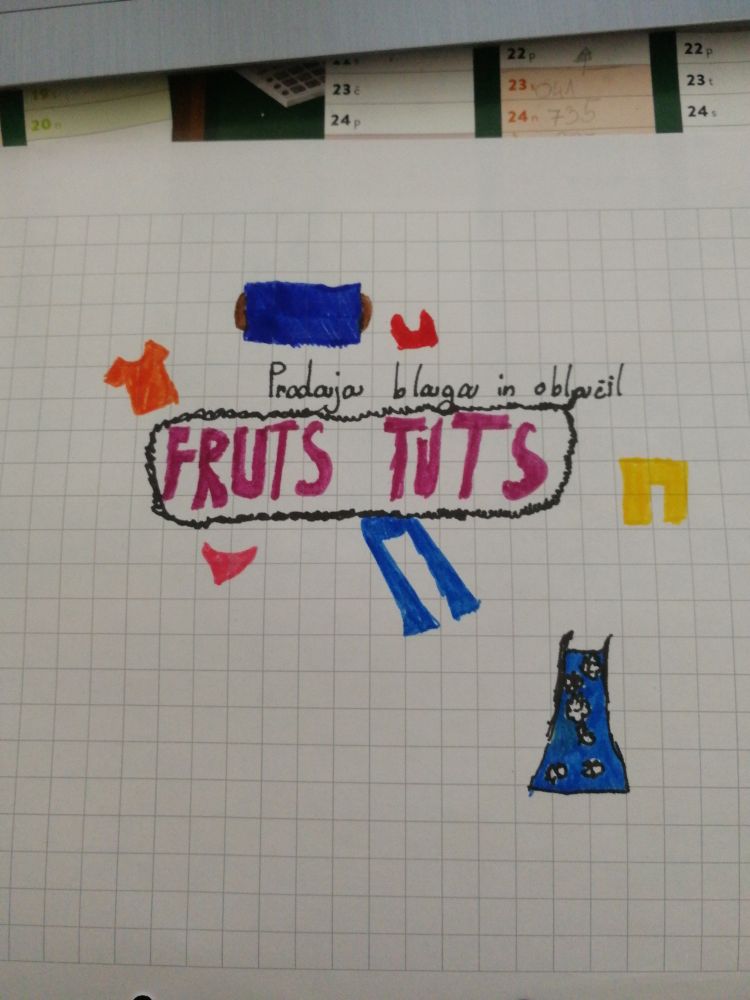 22 p
22 p
23 č
23
23 t
20 n
24 p
24 n 735
24 s
Prodaja blaga in oblačil
FRUTS TUTS